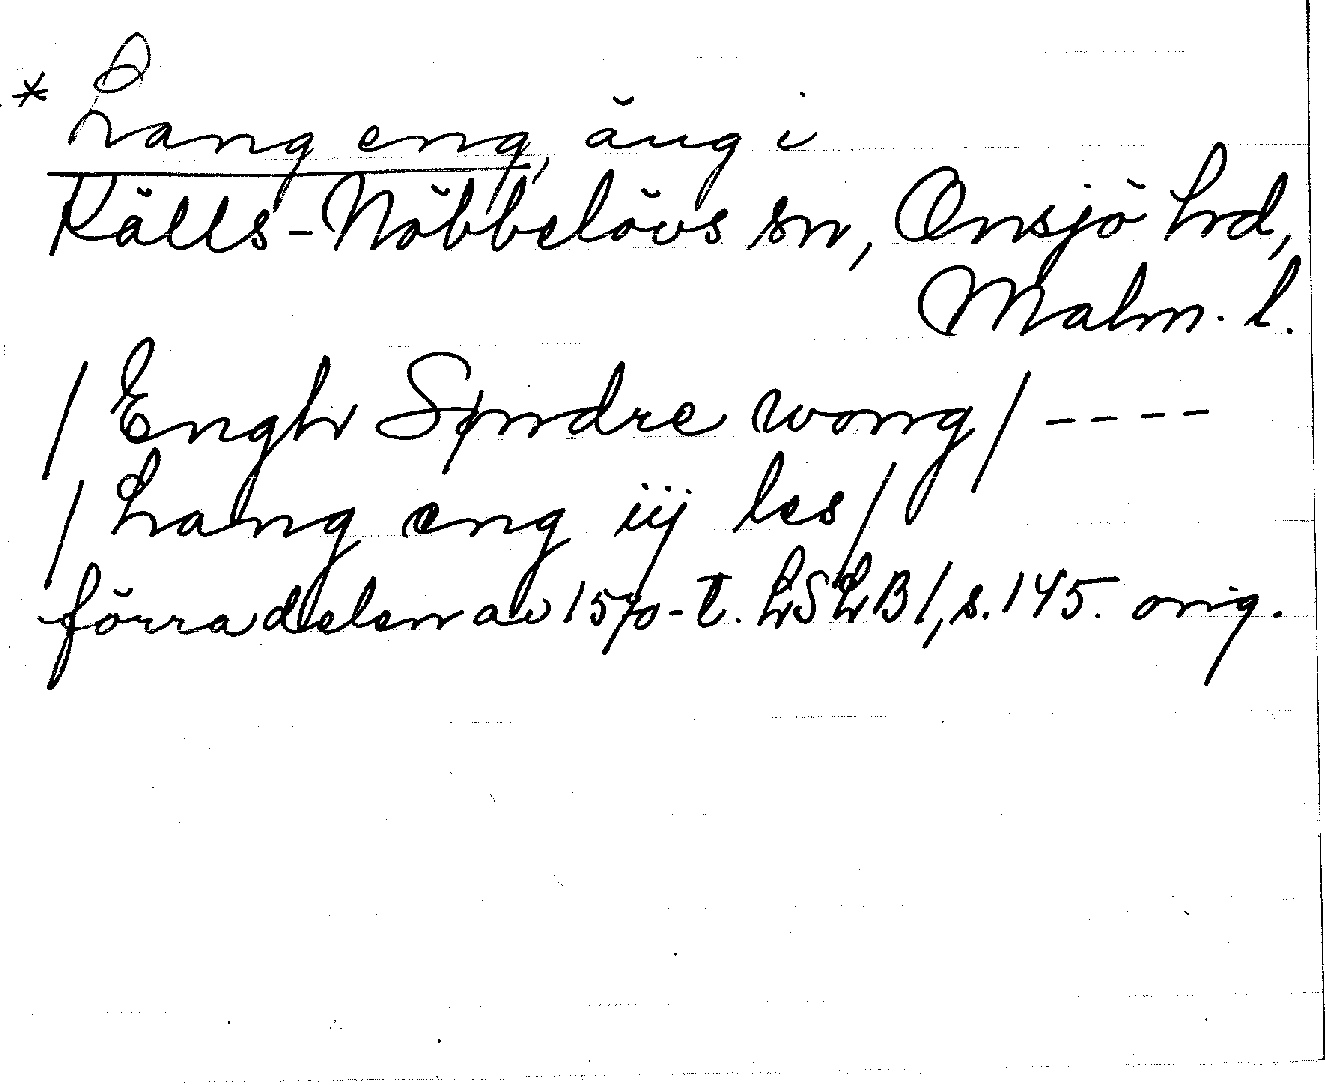 * Lang eng, äng i
Källs-Nöbbelövs sn, Onsjö hd,
Malm. l.
/ Engh Søndre wong / ----
/ Lang eng iij les /
förra delen av 1570-t. LSLB1, s. 145. orig.